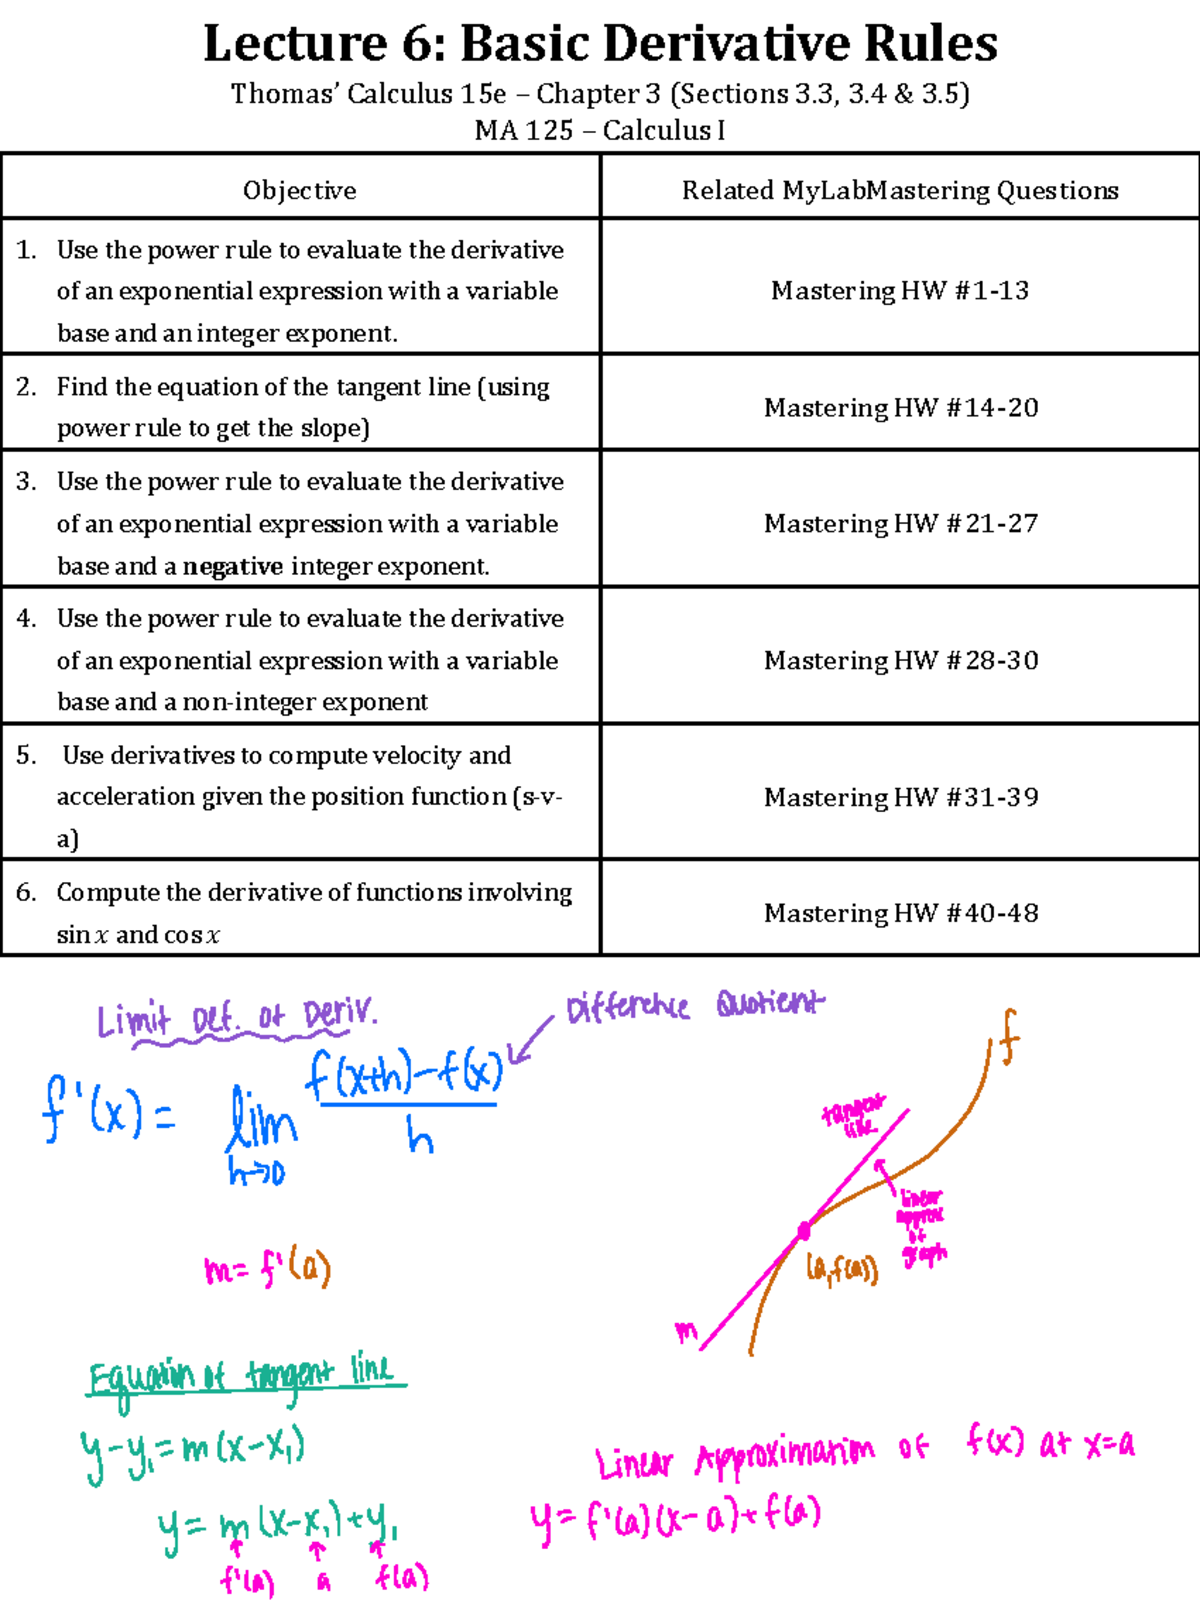 Lecture 6: Basic Derivative Rules
Thomas’ Calculus 15e – Chapter 3 (Sections 3.3, 3.4 & 3.5)
MA 125 – Calculus I
Objective
Related MyLabMastering Questions
1. Use the power rule to evaluate the derivative
of an exponential expression with a variable
base and an integer exponent.
Mastering HW #1-13
2. Find the equation of the tangent line (using
power rule to get the slope)
Mastering HW #14-20
3. Use the power rule to evaluate the derivative
of an exponential expression with a variable
base and a negative integer exponent.
Mastering HW #21-27
4. Use the power rule to evaluate the derivative
of an exponential expression with a variable
base and a non-integer exponent
Mastering HW #28-30
5. Use derivatives to compute velocity and
acceleration given the position function (s-v-
a)
Mastering HW #31-39
6. Compute the derivative of functions involving
sin x and cos x
Mastering HW #40-48
Limit Def. of Deriv.
Difference Quotient
f'(x) = lim h→0 f(x+h)-f(x) / h
f
tangent
line
linear
approx
of
graph
(a, f(a))
m
m = f'(a)
Equation of tangent line
y - y₁ = m(x - x₁)
y = m(x - x₁) + y₁
f'(a) a f(a)
Linear Approximation of f(x) at x=a
y = f'(a)(x - a) + f(a)